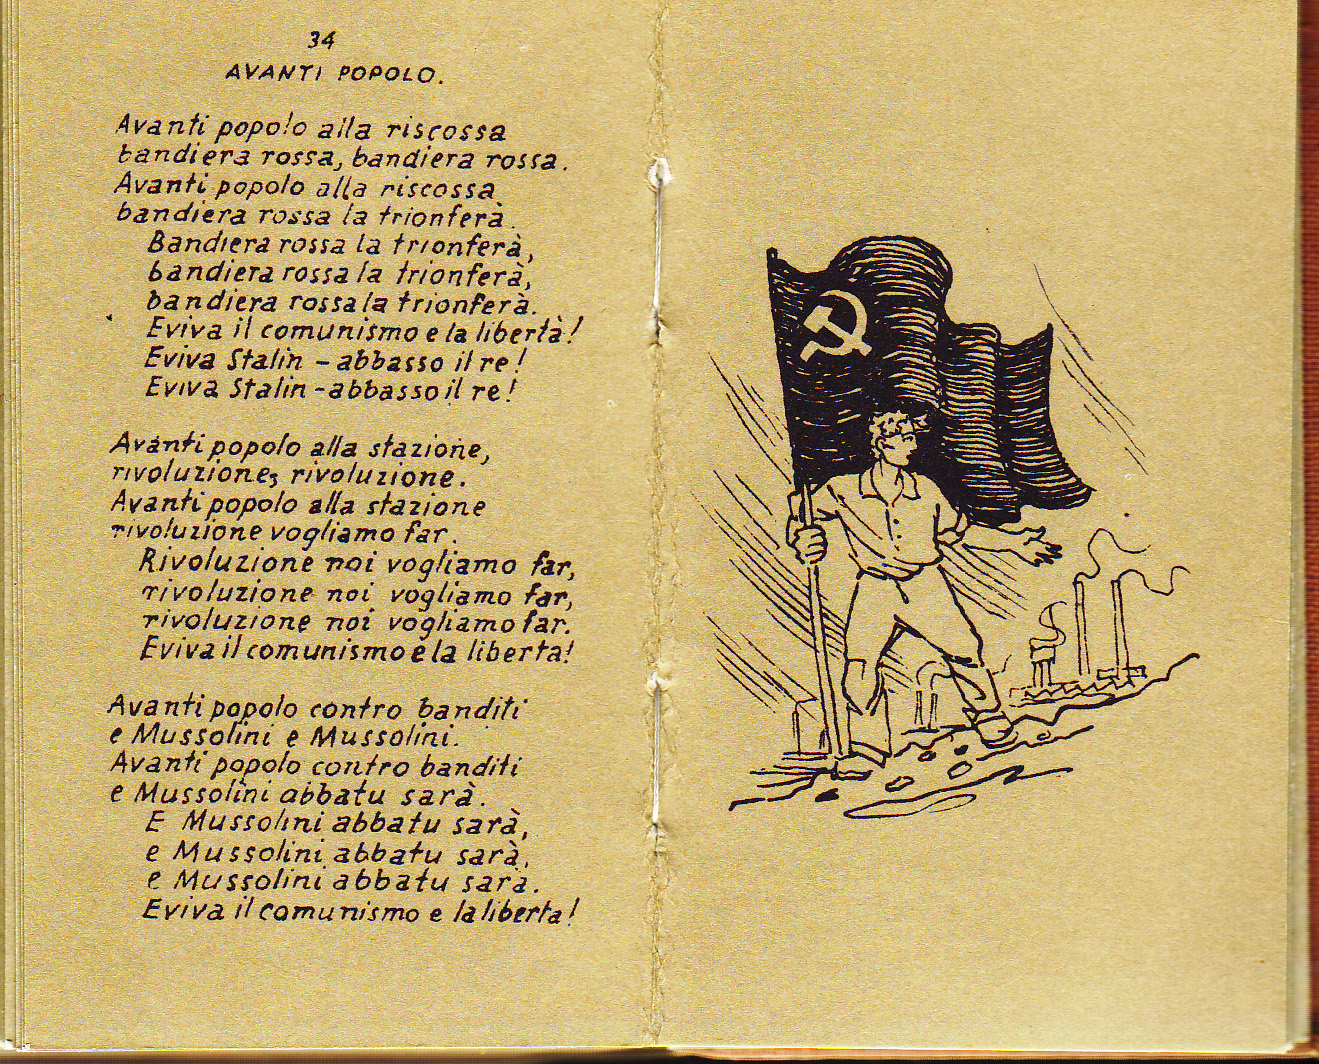 34
AVANTI POPOLO.
Avanti popolo alla riscossa
bandiera rossa, bandiera rossa.
Avanti popolo alla riscossa
bandiera rossa la trionferà.
Bandiera rossa la trionferà,
bandiera rossa la trionferà,
bandiera rossa la trionferà.
Eviva il comunismo e la libertà!
Eviva Stalin - abbasso il re!
Eviva Stalin - abbasso il re!
Avánti popolo alla stazione,
rivoluzione, rivoluzione.
Avanti popolo alla stazione
rivoluzione vogliamo far.
Rivoluzione noi vogliamo far,
rivoluzione noi vogliamo far,
rivoluzione noi vogliamo far.
Eviva il comunismo e la liberta!
Avanti popolo contro banditi
e Mussolini e Mussolini.
Avanti popolo contro banditi
e Mussolini abbatu sarà.
E Mussolini abbatu sarà,
e Mussolini abbatu sarà,
e Mussolini abbatu sarà.
Eviva il comunismo e la liberta!